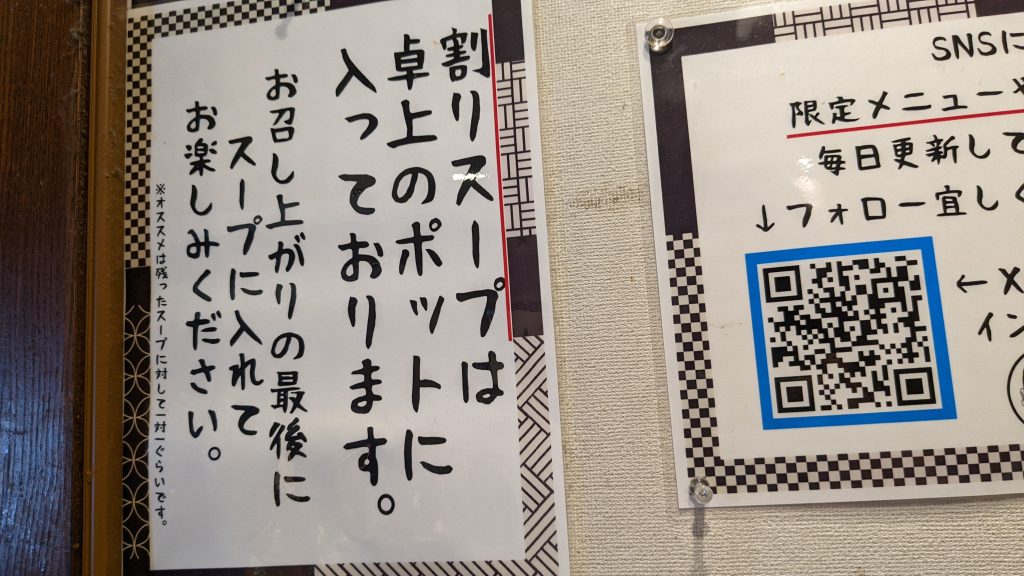 割りスープは
卓上のポットに
入っております。
お召し上がりの最後に
スープに入れて
お楽しみください。
※オススメは残ったスープに対して一対一ぐらいです。
SNSに
限定メニューや
毎日更新して
↓フォロー宜しく
←X
イン